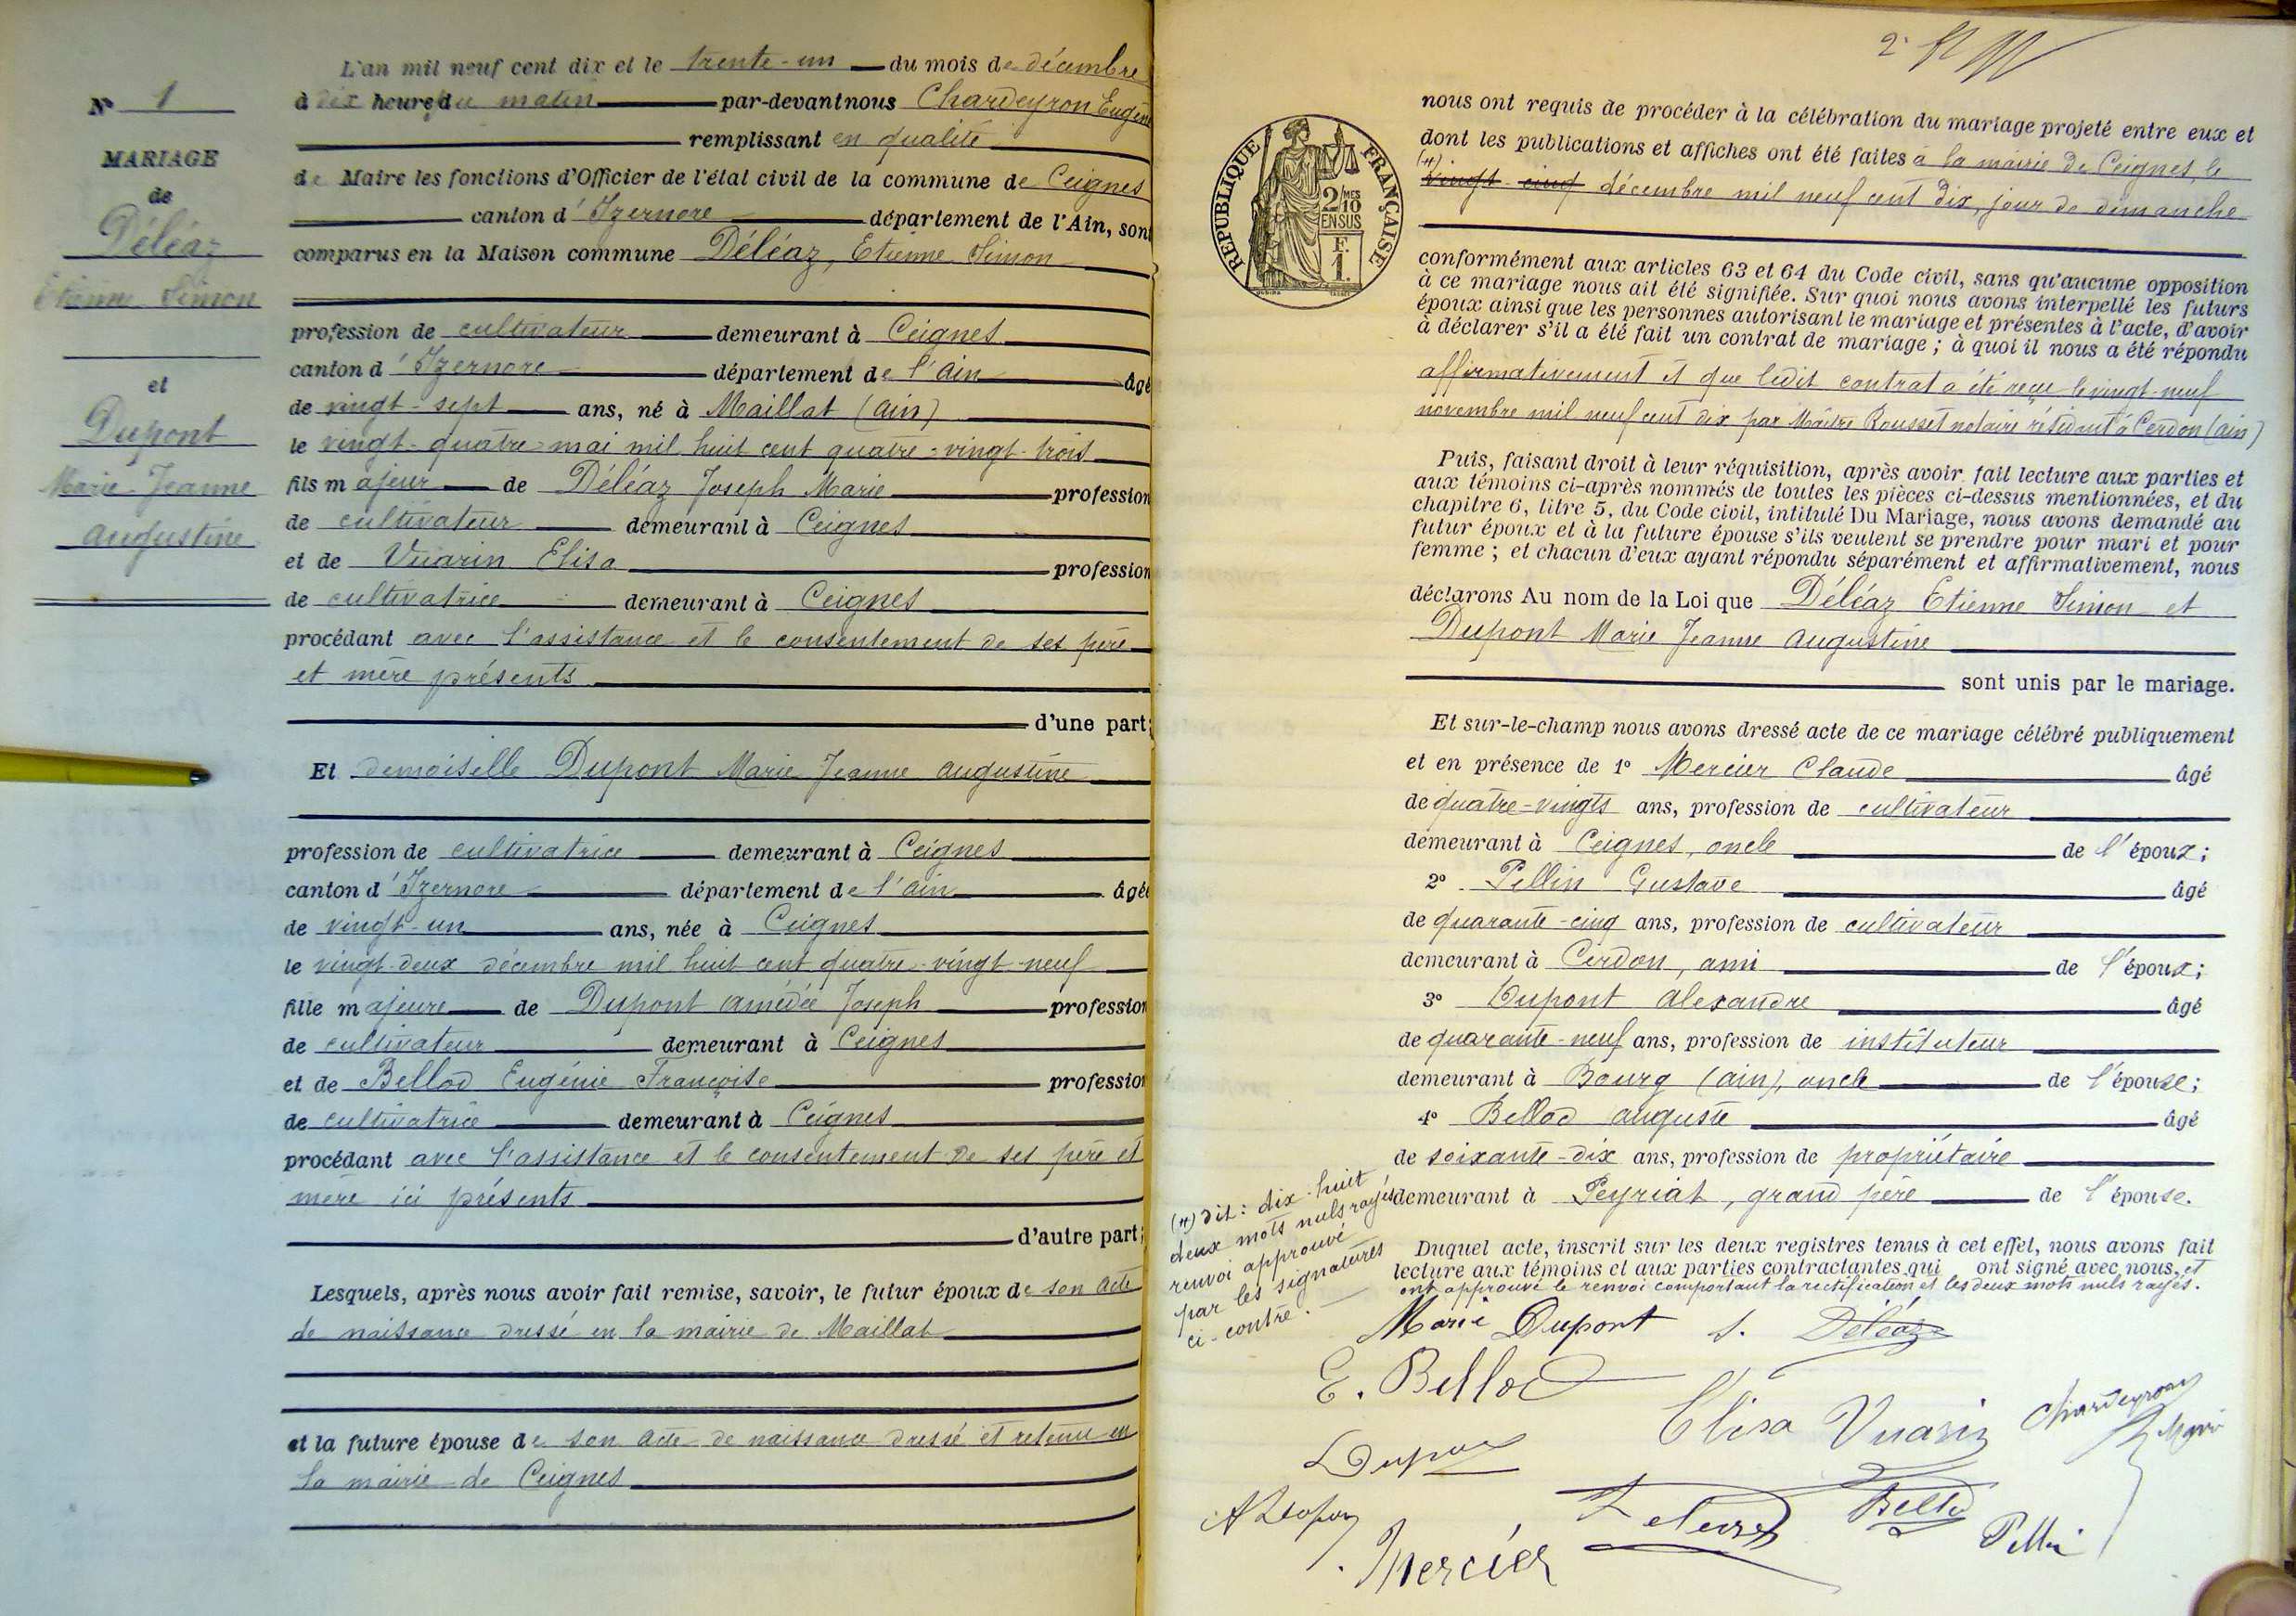 N° 1
MARIAGE
de
Déléaz
Etienne Simon
et
Dupont
Marie-Jeanne
Augustine
L'an mil neuf cent dix et le trente-un du mois de décembre
à dix heures du matin par-devant nous Chardeyron Eugène
remplissant en qualité
de Maire les fonctions d'Officier de l'état civil de la commune de Ceignes
canton d'Izernore département de l'Ain, sont
comparus en la Maison commune Déléaz, Etienne Simon
profession de cultivateur demeurant à Ceignes
canton d'Izernore département de l'Ain âgé
de vingt-sept ans, né à Maillat (Ain)
le vingt-quatre mai mil huit cent quatre-vingt-trois
fils majeur de Déléaz Joseph Marie profession
de cultivateur demeurant à Ceignes
et de Vuarin Elisa profession
de cultivatrice demeurant à Ceignes
procédant avec l'assistance et le consentement de ses père
et mère présents
d'une part;
Et demoiselle Dupont Marie Jeanne Augustine
profession de cultivatrice demeurant à Ceignes
canton d'Izernore département de l'Ain âgée
de vingt-un ans, née à Ceignes
le vingt-deux décembre mil huit cent quatre-vingt-neuf
fille majeure de Dupont Amédée Joseph profession
de cultivateur demeurant à Ceignes
et de Bellod Eugénie Françoise profession
de cultivatrice demeurant à Ceignes
procédant avec l'assistance et le consentement de ses père et
mère ici présents
d'autre part;
Lesquels, après nous avoir fait remise, savoir, le futur époux de son acte
de naissance dressé en la mairie de Maillat
et la future épouse de son acte de naissance dressé et retenu en
la mairie de Ceignes
2
RÉPUBLIQUE FRANÇAISE
2/10MES
EN SUS
F.
1.
nous ont requis de procéder à la célébration du mariage projeté entre eux et
dont les publications et affiches ont été faites à la mairie de Ceignes, le
(+)
vingt-cinq décembre mil neuf cent dix, jour de dimanche
conformément aux articles 63 et 64 du Code civil, sans qu'aucune opposition
à ce mariage nous ait été signifiée. Sur quoi nous avons interpellé les futurs
époux ainsi que les personnes autorisant le mariage et présentes à l'acte, d'avoir
à déclarer s'il a été fait un contrat de mariage; à quoi il nous a été répondu
affirmativement et que ledit contrat a été reçu le vingt-neuf
novembre mil neuf cent dix par Maître Rousset notaire résidant à Cerdon (Ain)
Puis, faisant droit à leur réquisition, après avoir fait lecture aux parties et
aux témoins ci-après nommés de toutes les pièces ci-dessus mentionnées, et du
chapitre 6, titre 5, du Code civil, intitulé Du Mariage, nous avons demandé au
futur époux et à la future épouse s'ils veulent se prendre pour mari et pour
femme; et chacun d'eux ayant répondu séparément et affirmativement, nous
déclarons Au nom de la Loi que Déléaz Etienne Simon et
Dupont Marie Jeanne Augustine
sont unis par le mariage.
Et sur-le-champ nous avons dressé acte de ce mariage célébré publiquement
et en présence de 1° Mercier Claude âgé
de quatre-vingts ans, profession de cultivateur
demeurant à Ceignes, oncle de l'époux;
2° Pellin Gustave âgé
de quarante-cinq ans, profession de cultivateur
demeurant à Cerdon, ami de l'époux;
3° Dupont Alexandre âgé
de quarante-neuf ans, profession de instituteur
demeurant à Bourg (Ain), oncle de l'épouse;
4° Bellod Auguste âgé
de soixante-dix ans, profession de propriétaire
demeurant à Peyriat, grand père de l'épouse.
(+) dit: dix-huit
deux mots nuls rayés
renvoi approuvé
par les signatures
ci-contre.
Duquel acte, inscrit sur les deux registres tenus à cet effet, nous avons fait
lecture aux témoins et aux parties contractantes qui ont signé avec nous, et
ont approuvé le renvoi comportant la rectification et les deux mots nuls rayés.
Marie Dupont S. Déléaz
E. Bellod
Elisa Vuarin Chardeyron
Dupont
A Dupont
Mercier
Déléaz
Bellod
Pellin